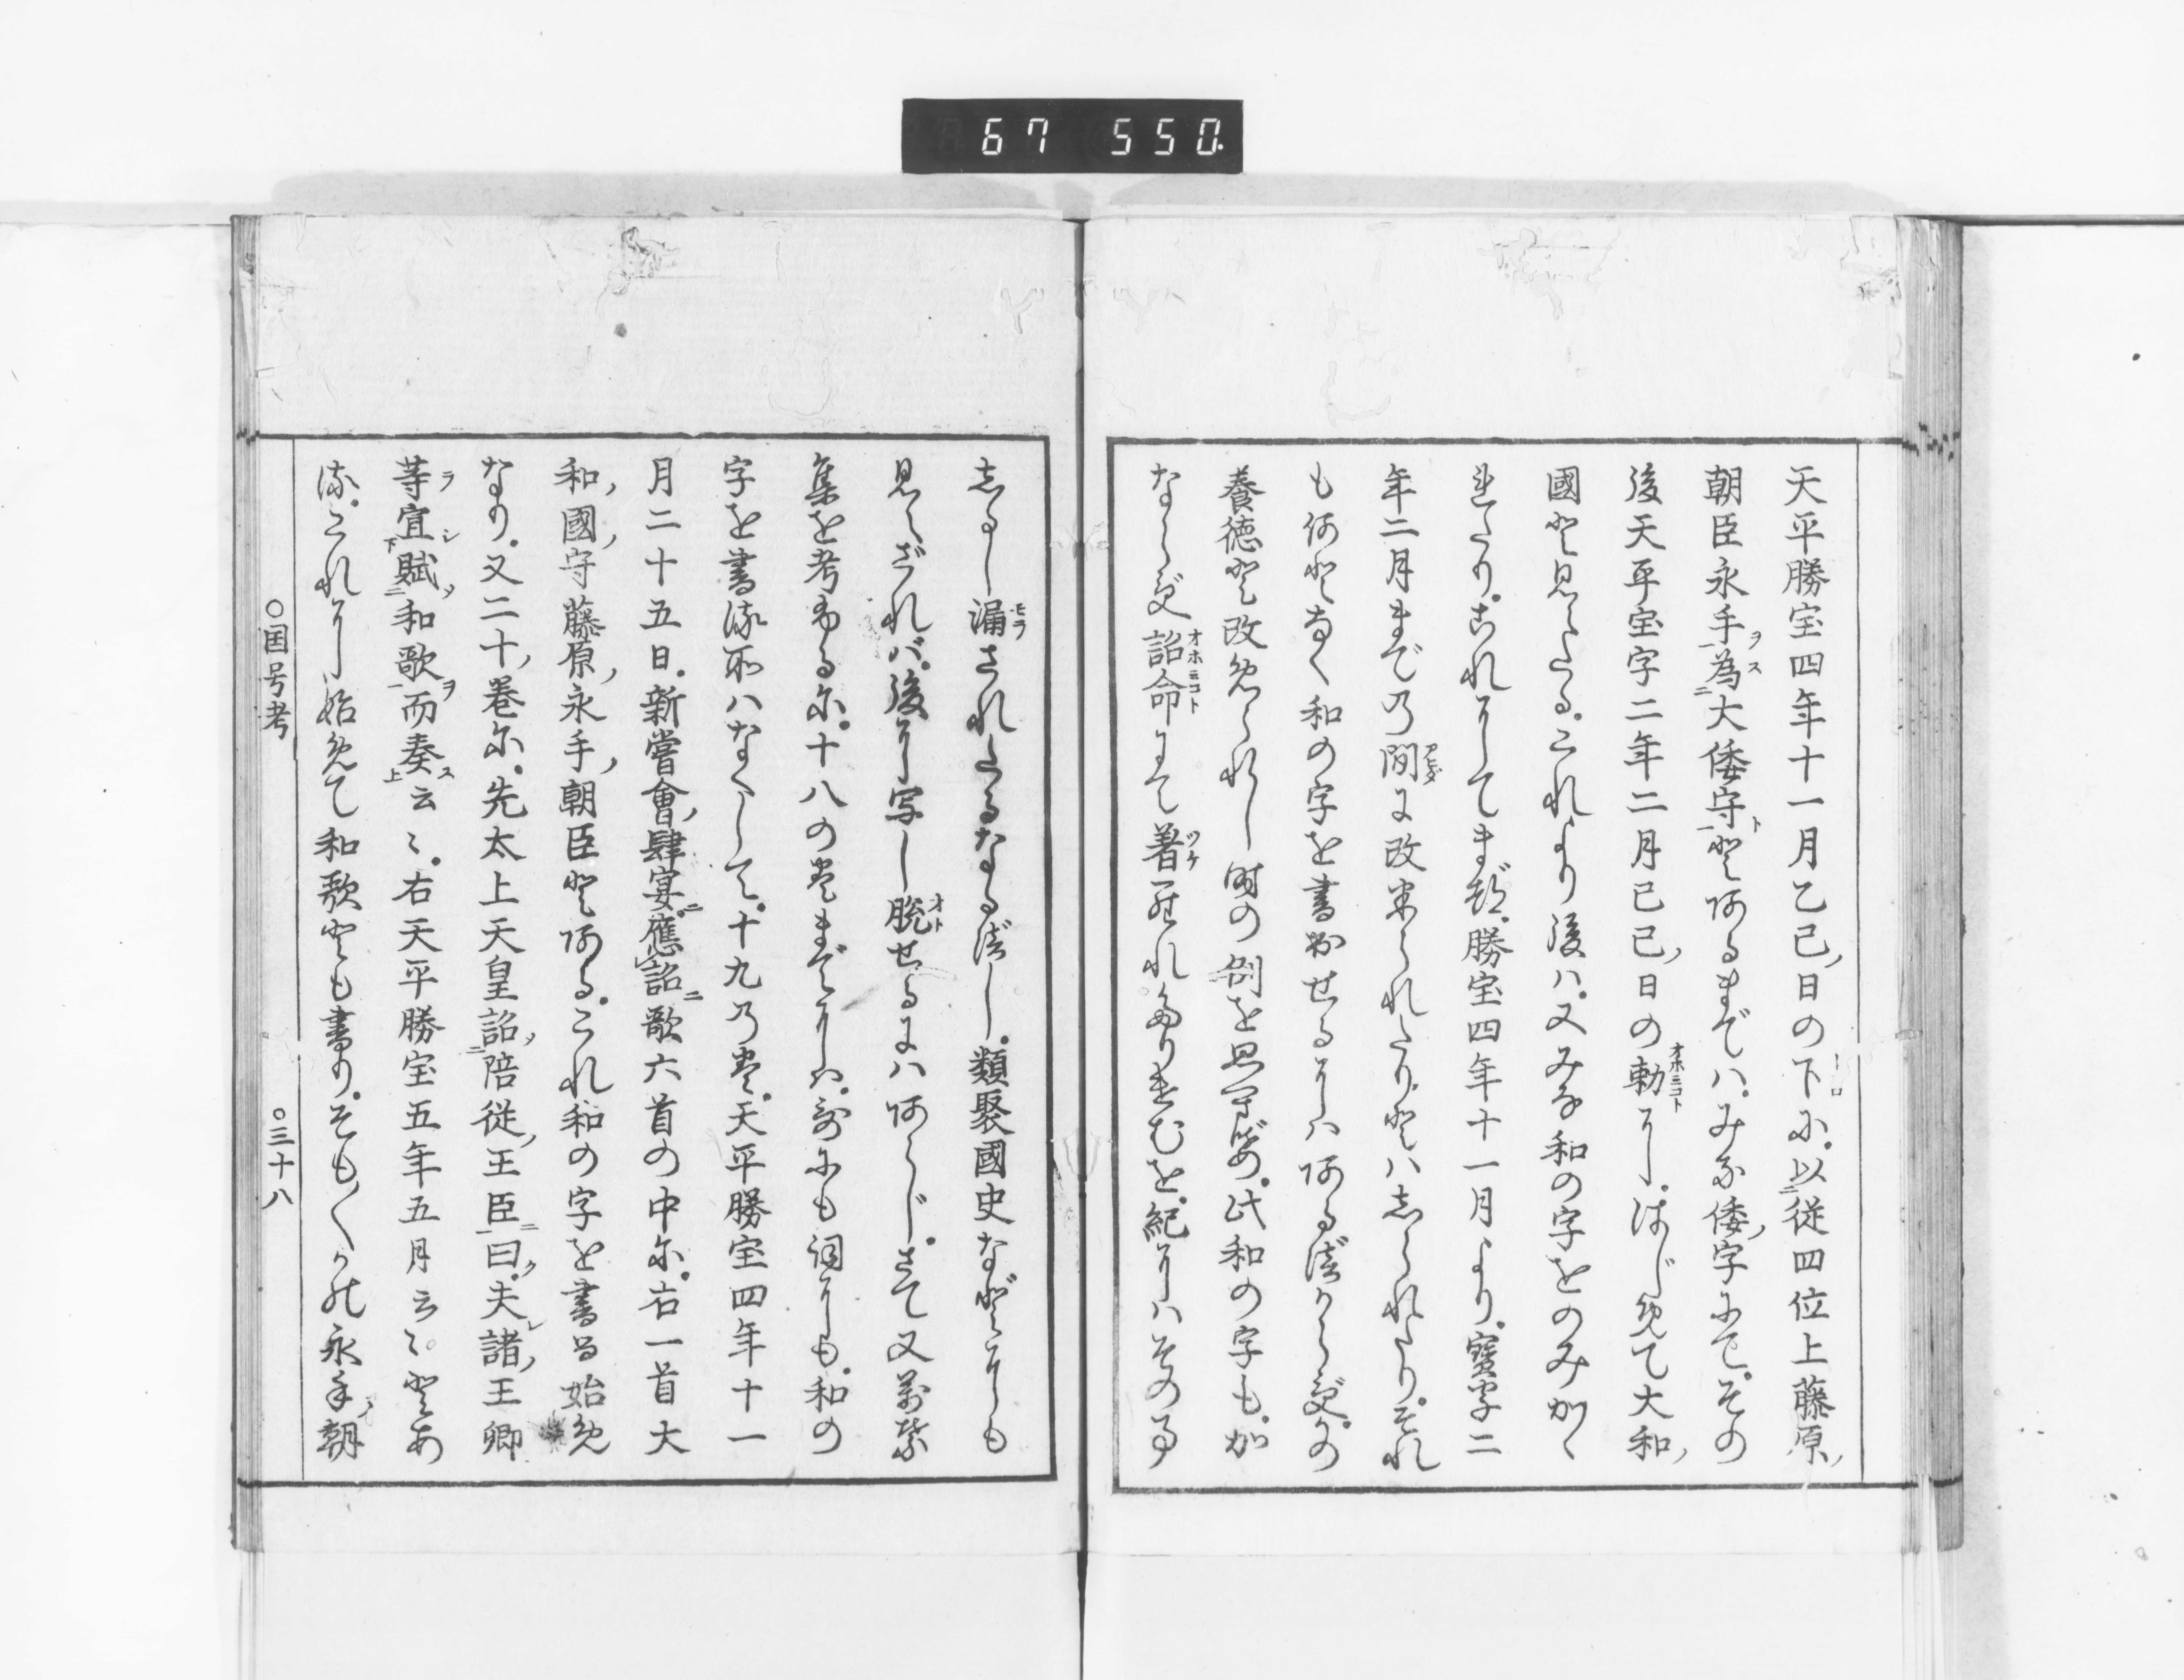 67 550.
天平勝宝四年十一月乙巳ノ日の下に。以従四位上藤原ノ
朝臣永手為大倭守とあるまでハ。みな倭ノ字にて。その
後天平宝字二年二月己巳ノ日の勅に。はじめて大和ノ
國と見えたる。これより後ハ。又みな和の字をのみかゝ
れたり。これにてまづ。勝宝四年十一月より。寶字二
年二月までの間に改まられたりとハしられたり。それ
も何となく和の字を書出せるにハあるべからず。かの
養徳と改められし時の例を思ふに。此和の字も。か
ならず詔命にて著られたりけむを。紀にハその事
しるし漏されたるなるべし。類聚國史などにも
見えざれバ。後に写し脱せるにハあらじ。さて又萬葉
集を考ふるに。十八の巻までにハ。哥にも詞にも。和の
字を書る所ハなくして。十九の巻に。天平勝宝四年十一
月二十五日。新嘗會ノ肆宴應詔歌六首の中に。右一首大
和ノ國ノ守藤原ノ永手ノ朝臣とある。これ和の字を書る始め
なり。又二十ノ巻に。先太上天皇詔陪従ノ王臣曰。夫諸ノ王卿
等宜賦和歌而奏云〻。右天平勝宝五年五月云〻。とあ
る。これに始めて和歌とも書り。そも〳〵かの永手ノ朝
○国号考
○三十八